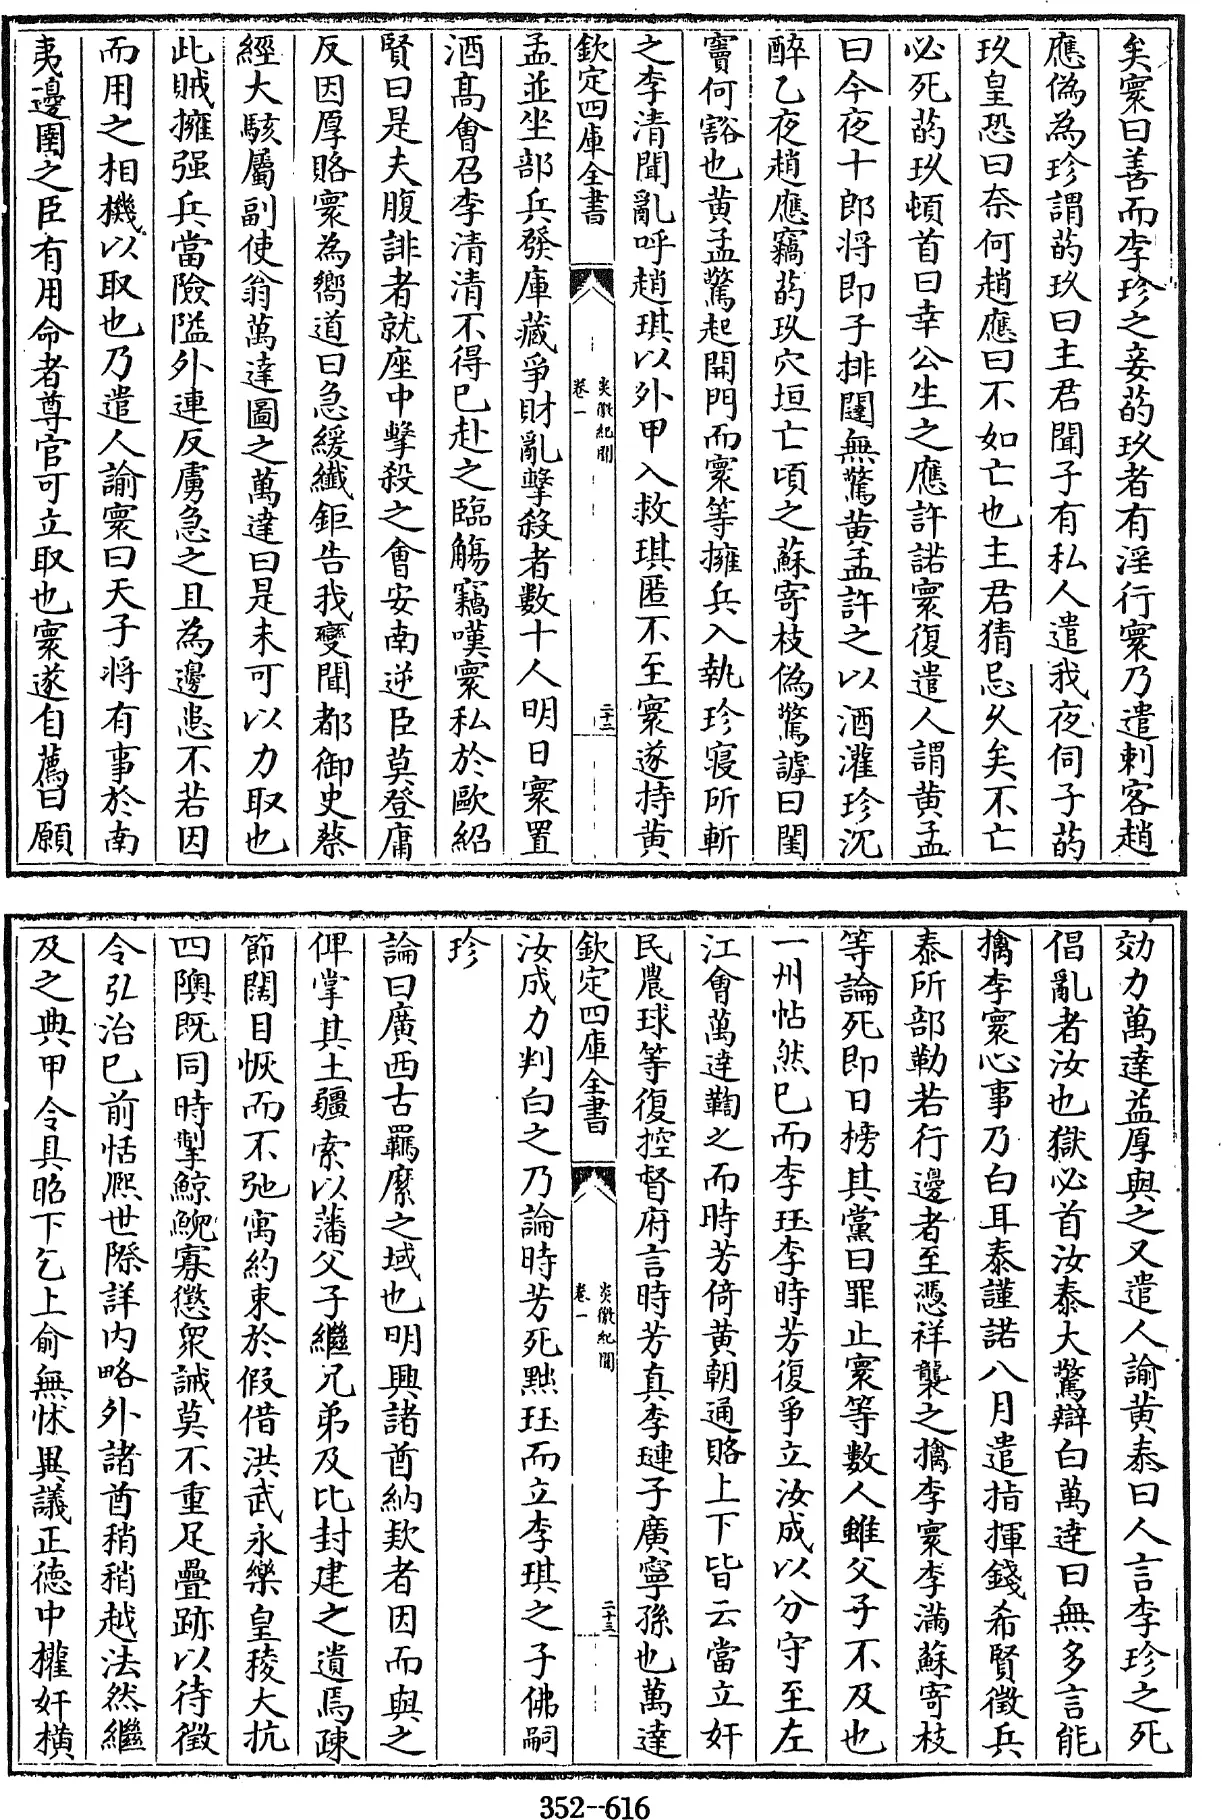 矣寰曰善而李珍之妾菂玖者有淫行寰乃遣刺客趙
應偽為珍謂菂玖曰主君聞子有私人遣我夜伺子菂
玖皇恐曰奈何趙應曰不如亡也主君猜忌久矣不亡
必死菂玖頓首曰幸公生之應許諾寰復遣人謂黄孟
曰今夜十郎将即子排闥無驚黄孟許之以酒灌珍沉
醉乙夜趙應竊菂玖穴垣亡頃之蘇寄枝偽驚謼曰閨
竇何豁也黄孟驚起開門而寰等擁兵入執珍寢所斬
之李清聞亂呼趙琪以外甲入救琪匿不至寰遂持黄
欽定四庫全書
炎徼紀聞
卷一
二十二
孟並坐部兵發庫藏爭財亂擊殺者數十人明日寰置
酒髙會召李清清不得已赴之臨觴竊嘆寰私於歐紹
賢曰是夫腹誹者就座中擊殺之會安南逆臣莫登庸
反因厚賂寰為嚮道曰急緩纖鉅告我變聞都御史蔡
經大駭屬副使翁萬達圖之萬達曰是未可以力取也
此賊擁强兵當險隘外連反虜急之且為邊患不若因
而用之相機以取也乃遣人諭寰曰天子将有事於南
夷邊圉之臣有用命者尊官可立取也寰遂自薦曰願
効力萬達益厚與之又遣人諭黄泰曰人言李珍之死
倡亂者汝也獄必首汝泰大驚辯白萬達曰無多言能
擒李寰心事乃白耳泰謹諾八月遣指揮錢希賢徵兵
泰所部勒若行邊者至憑祥襲之擒李寰李滿蘇寄枝
等論死即日榜其黨曰罪止寰等數人雖父子不及也
一州帖然已而李珏李時芳復爭立汝成以分守至左
江會萬達鞫之而時芳倚黄朝通賂上下皆云當立奸
民農球等復控督府言時芳真李璉子廣寧孫也萬達
欽定四庫全書
炎徼紀聞
卷一
二十三
汝成力判白之乃論時芳死黜珏而立李琪之子佛嗣
珍
論曰廣西古羈縻之域也明興諸酋納款者因而與之
俾掌其土疆索以藩父子繼兄弟及比封建之遺焉疎
節闊目恢而不弛寓約束於假借洪武永樂皇稜大抗
四隩既同時掣鯨鯢寡懲衆誡莫不重足疊跡以待徴
令弘治已前恬熈世際詳内略外諸酋稍稍越法然繼
及之典甲令具昭下乞上俞無怵異議正徳中權奸横
352--616